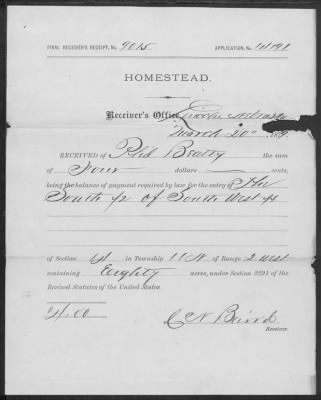 FINAL RECEIVER'S RECEIPT, No. 9015 APPLICATION, No. 14191
HOMESTEAD.
Receiver's Office, Lincoln Nebraska
March 20" 18
RECEIVED of Phil Beatty the sum
of Four dollars cents,
being the balance of payment required by law for the entry of The
South ½ of South West ¼
of Section in Township 11 N of Range 2 West
containing Eighty acres, under Section 2291 of the
Revised Statutes of the United States.
$4.00
C N Baird
Receiver.